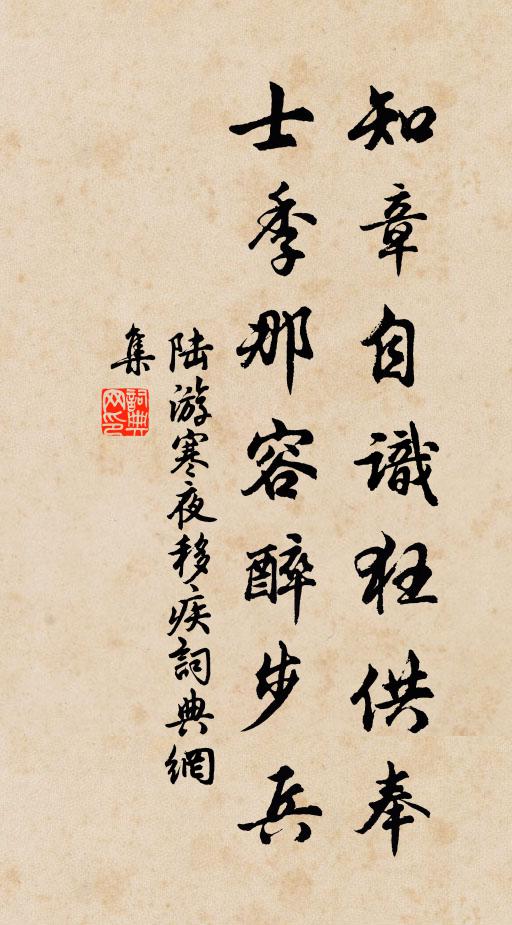 知章自識狂供奉
士季那容醉步兵
陸游寒夜移疾詞典網
集
詞典网印